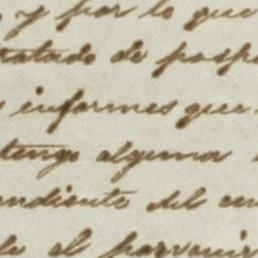 y por lo que
tratado de posp
informes que
tengo alguna
endiente del
el porvenir